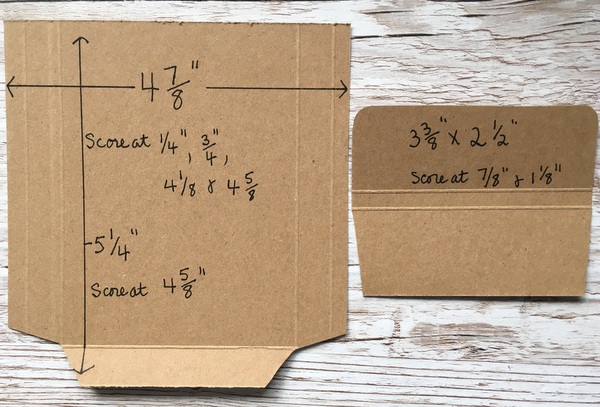 4 7/8"
Score at 1/4", 3/4",
4 1/8 & 4 5/8
5 1/4"
Score at 4 5/8"
3 3/8" x 2 1/2"
Score at 7/8" & 1 1/8"